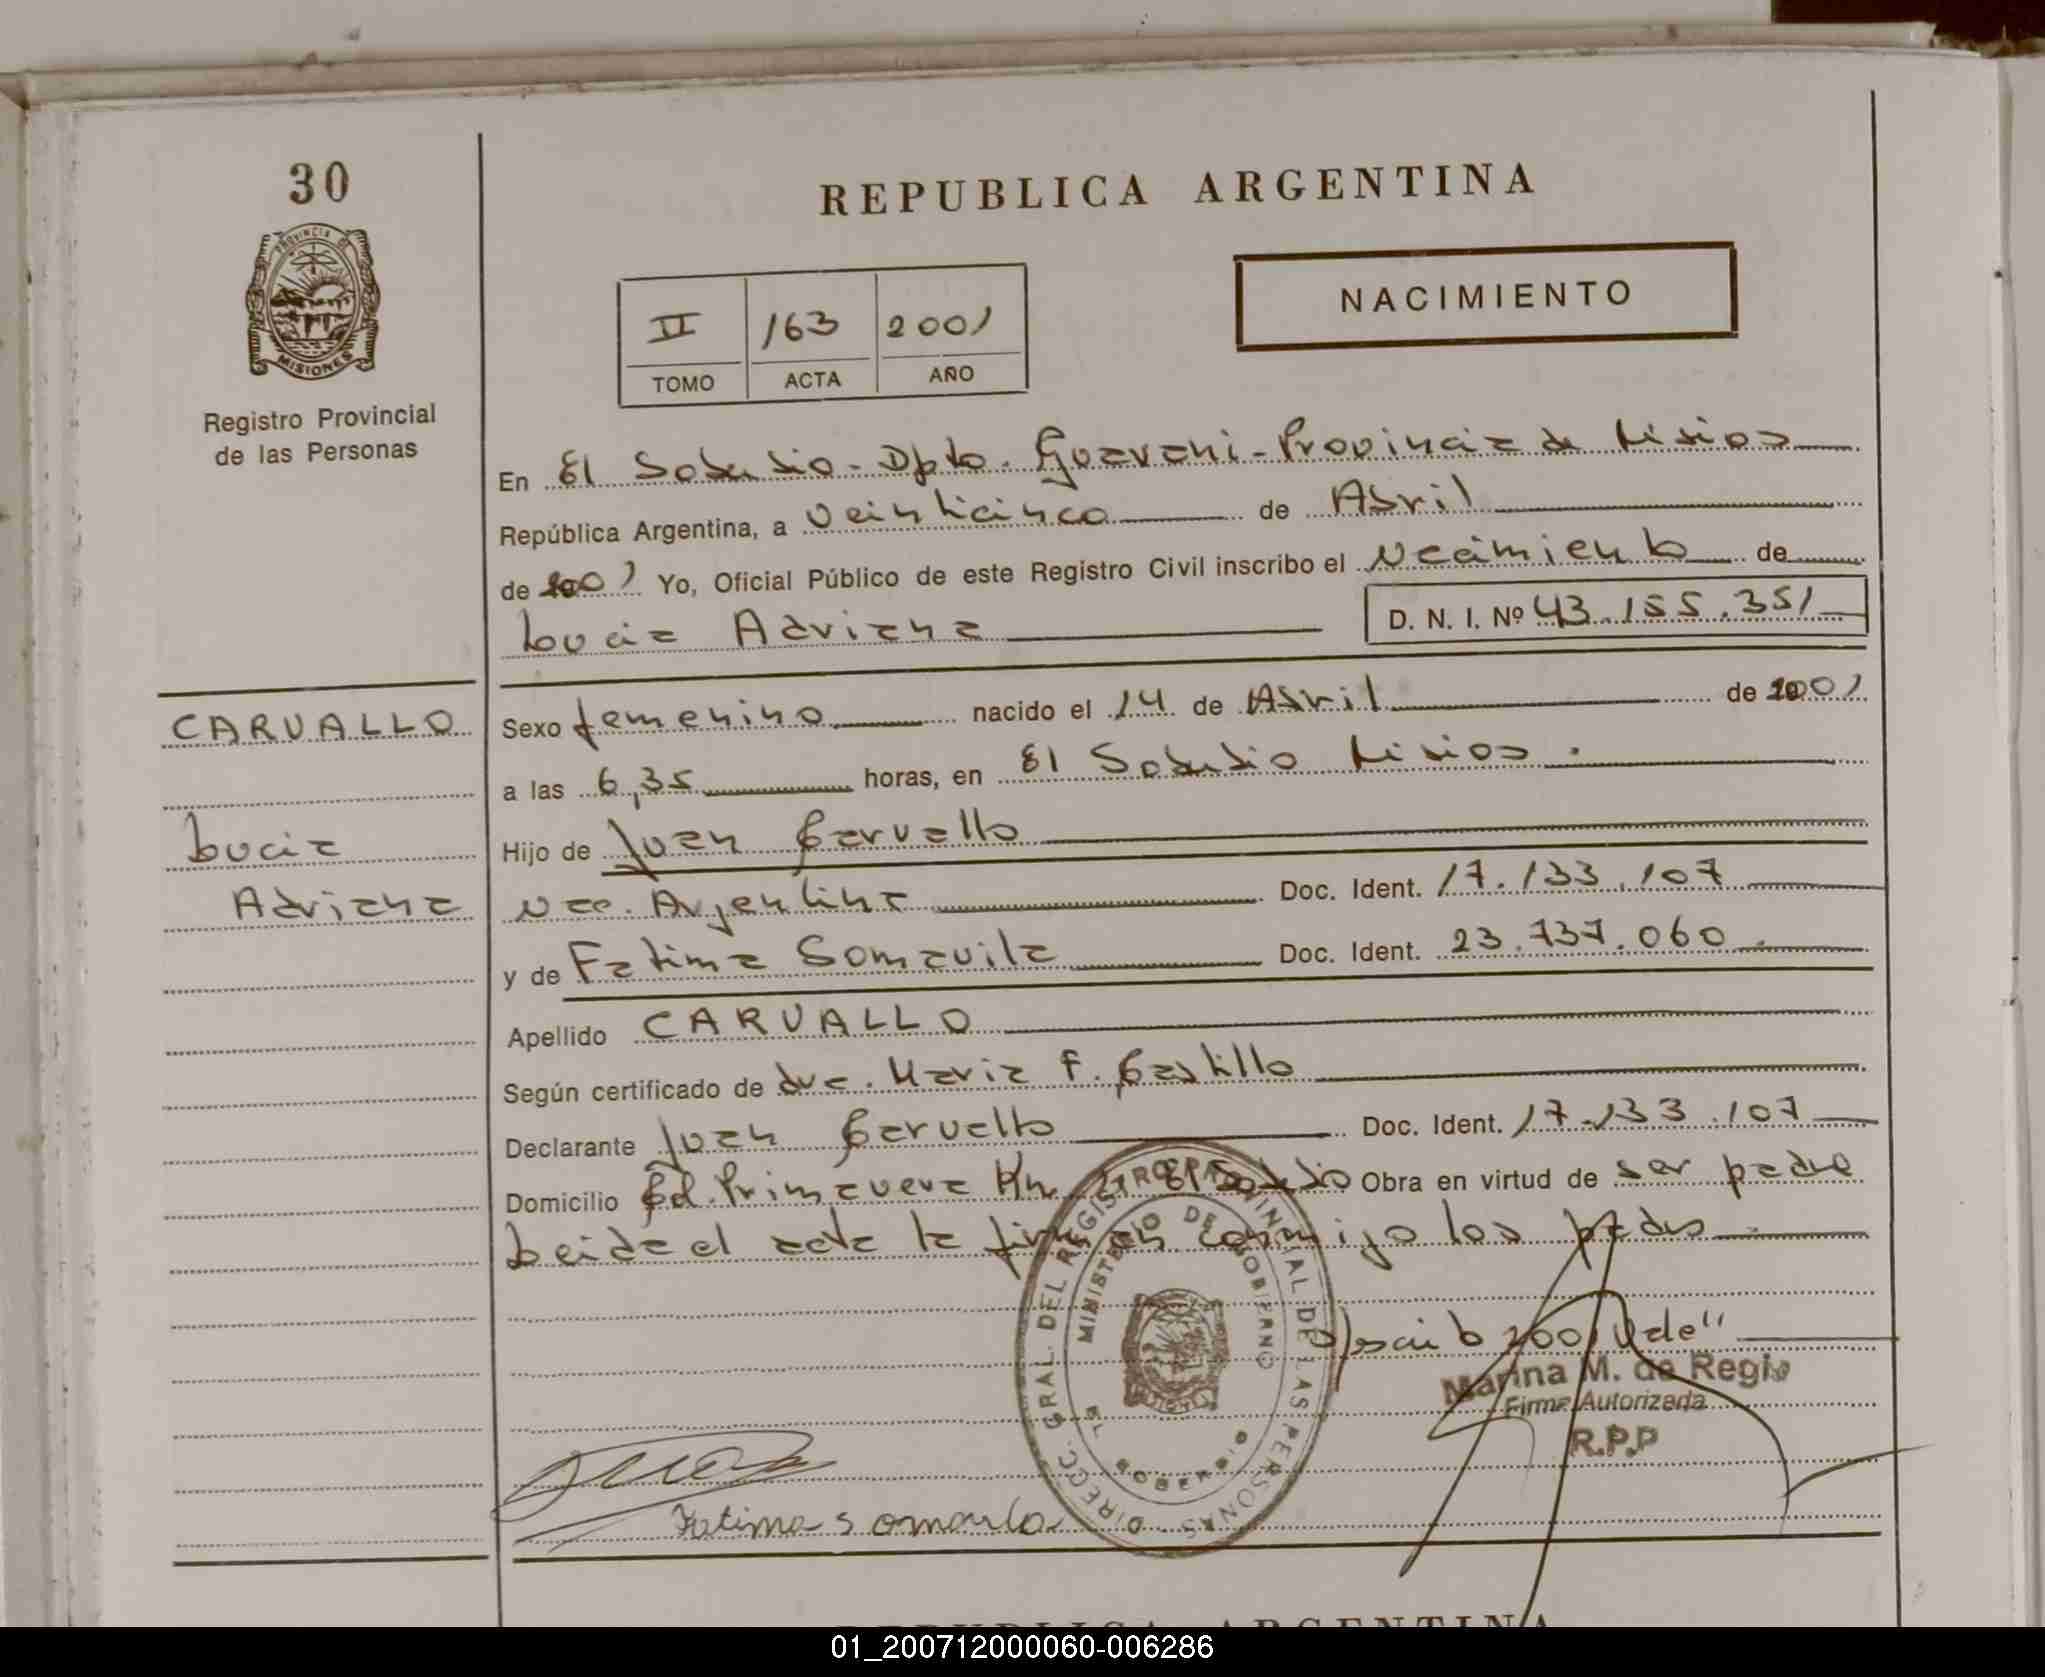 30
PROVINCIA DE
MISIONES
Registro Provincial
de las Personas
REPUBLICA ARGENTINA
NACIMIENTO
II 163 2001
TOMO ACTA AÑO
En El Soberbio - Dpto. Guarani - Provincia de Misiones
República Argentina, a veinticinco de Abril
de 2001 Yo, Oficial Público de este Registro Civil inscribo el Nacimiento de
Lucia Adriana D. N. I. Nº 43.155.351
CARVALLO
Lucia
Adriana
Sexo femenino nacido el 14 de Abril de 2001
a las 6,35 horas, en El Soberbio Misiones.
Hijo de Juan Carvallo
Nac. Argentina Doc. Ident. 17.133.107
y de Fatima Somavila Doc. Ident. 23.737.060
Apellido CARVALLO
Según certificado de dra. Maria F. Castillo
Declarante Juan Carvallo Doc. Ident. 17.133.107
Domicilio Cd. Primavera Km El Soberbio Obra en virtud de ser padre
Leida el acta la firman conmigo los padres
2001 Vale"
Marina M. de Regis
Firma Autorizada
R.P.P
DIRECC. GRAL. DEL REGISTRO PROVINCIAL DE LAS PERSONAS
MINISTERIO DE GOBIERNO
EL SOBERBIO
Fatima Somavila
REPUBLICA ARGENTINA
01_200712000060-006286